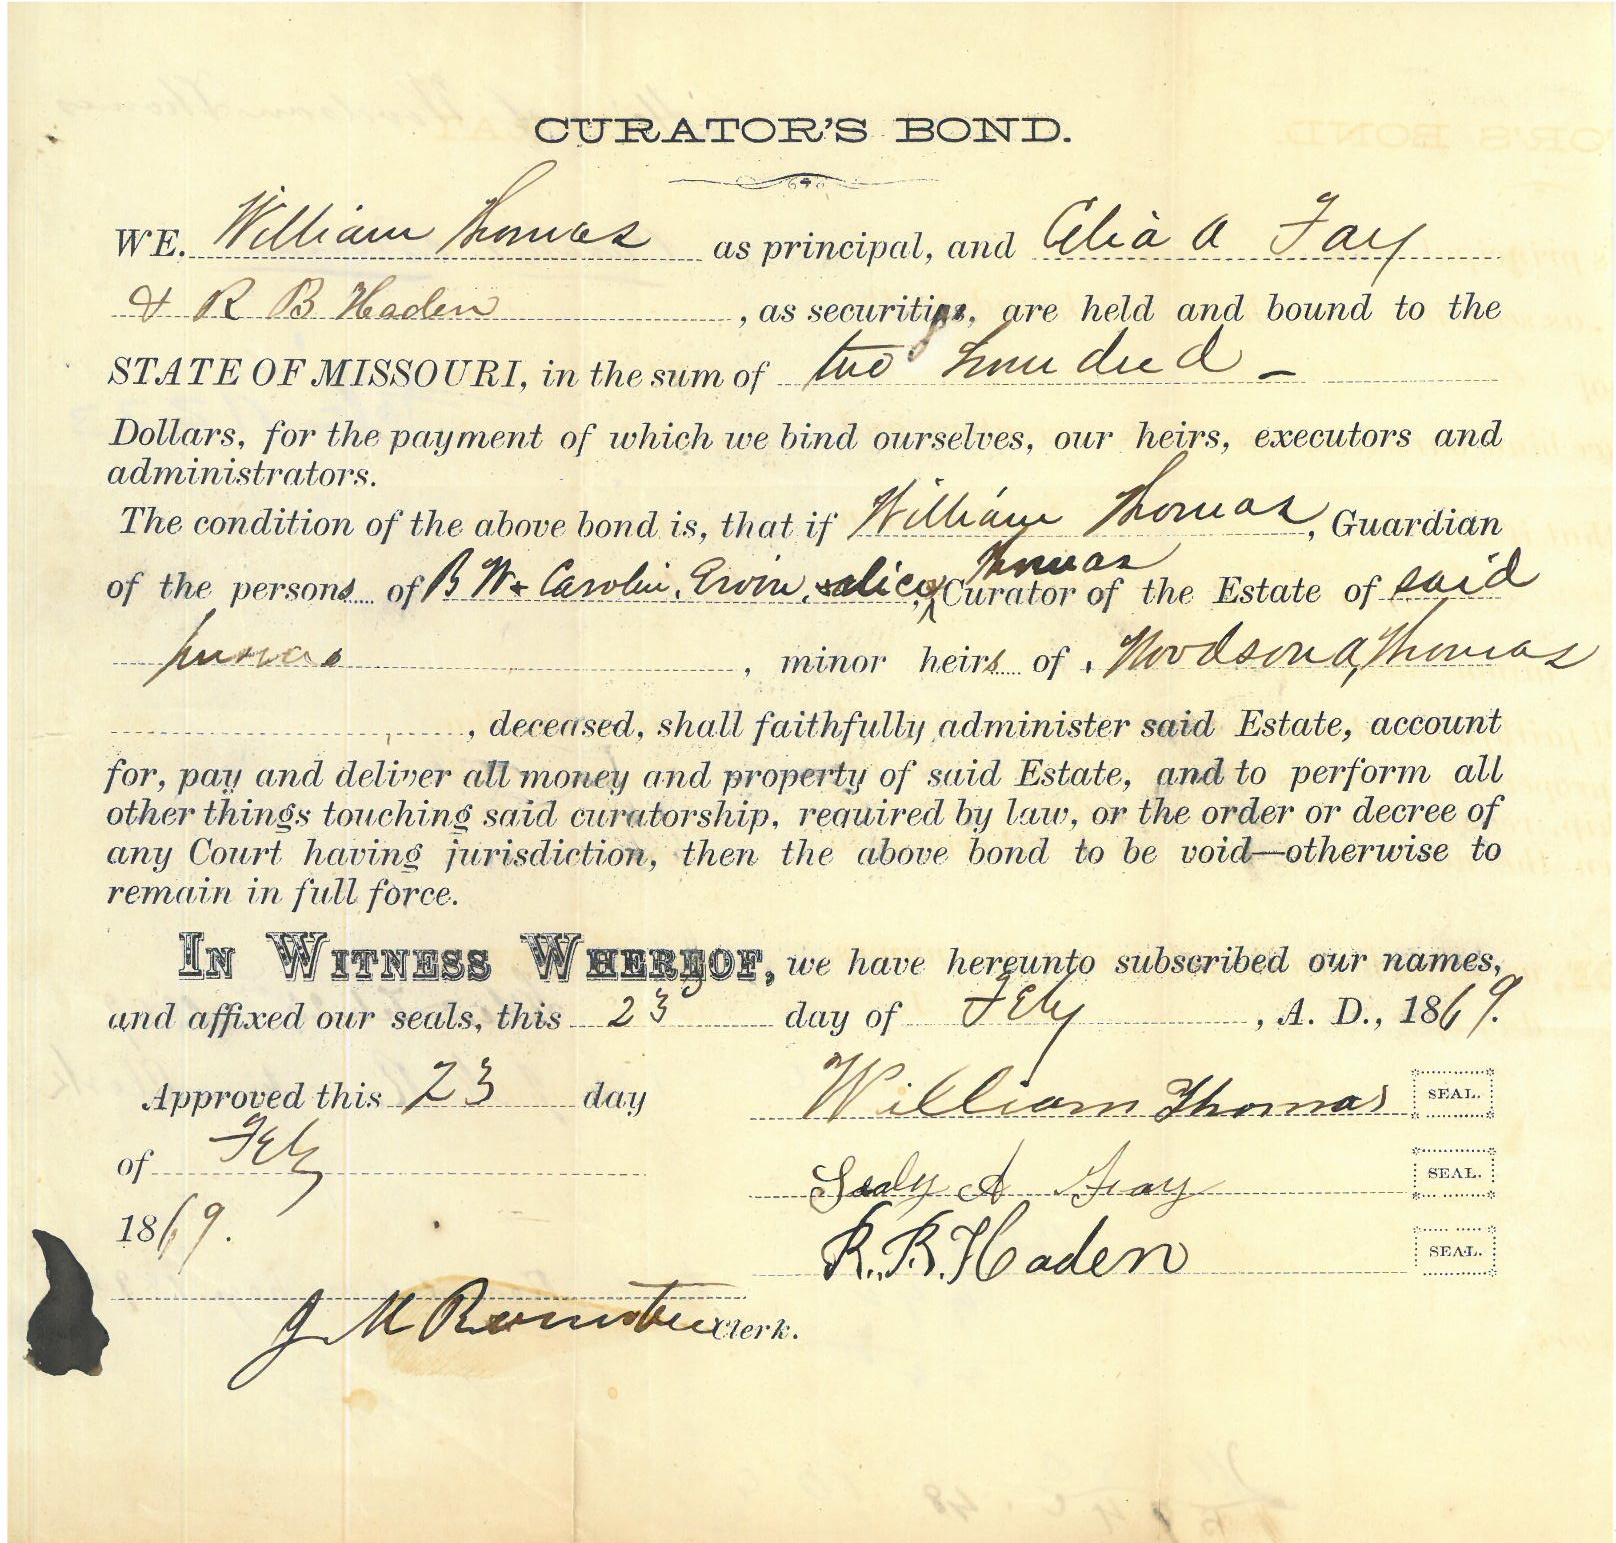 CURATOR'S BOND.
WE. William Thomas as principal, and Celia A Fay
& R B Haden, as securities, are held and bound to the
STATE OF MISSOURI, in the sum of two hundred –
Dollars, for the payment of which we bind ourselves, our heirs, executors and
administrators.
The condition of the above bond is, that if William Thomas, Guardian
of the persons of B W & Carolin, Ervin, & alice, Thomas Curator of the Estate of said
minors, minor heirs of, Woodson A, Thomas
, deceased, shall faithfully administer said Estate, account
for, pay and deliver all money and property of said Estate, and to perform all
other things touching said curatorship, required by law, or the order or decree of
any Court having jurisdiction, then the above bond to be void—otherwise to
remain in full force.
IN WITNESS WHEREOF, we have hereunto subscribed our names,
and affixed our seals, this 23 day of Feby, A. D., 1869.
Approved this 23 day
of Feby
1869.
William Thomas SEAL.
Sealy A Fray SEAL.
R. B. Haden SEAL.
J M Clerk.